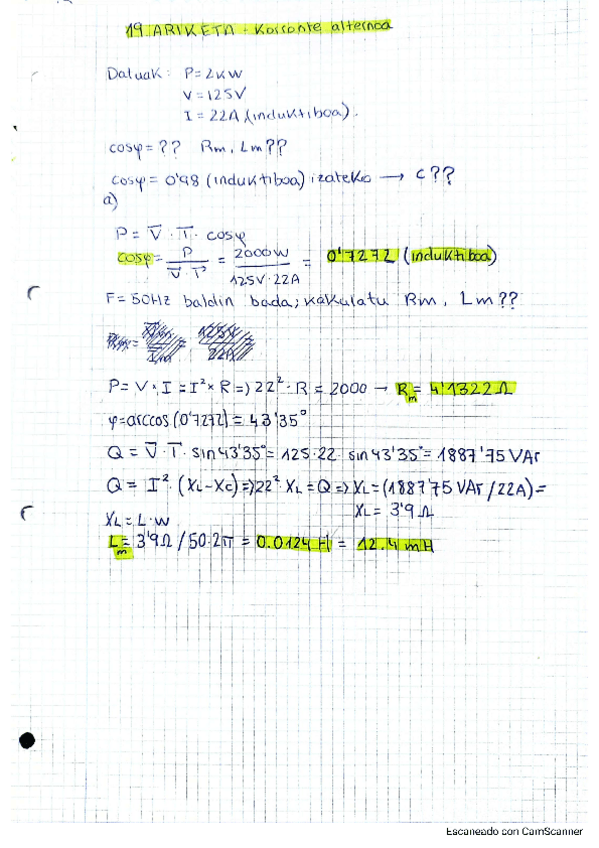 19. ARIKETA - Korronte alternoa
Datuak: P=2KW
V=125V
I=22A (induktiboa).
cosφ=?? Rm, Lm??
cosφ=0'98 (induktiboa) izateko → C??
a)
P= V̅·I̅·cosφ
cosφ= P / V̅·I̅ = 2000W / 125V·22A = 0'7272 (induktiboa)
F=50HZ baldin bada; kalkulatu Rm, Lm??
P=V×I=I²×R=)22²·R=2000 → Rm=4'1322Ω
φ=arccos(0'7272)=43'35°
Q=V̅·I̅·sin43'35°=125·22·sin43'35°=1887'75VAr
Q=I²·(XL-XC)=)22²XL=Q=)XL=(1887'75VAr/22A)=
XL=3'9Ω
XL=L·W
Lm=3'9Ω/50·2π=0.0124H=12.4mH
Escaneado con CamScanner